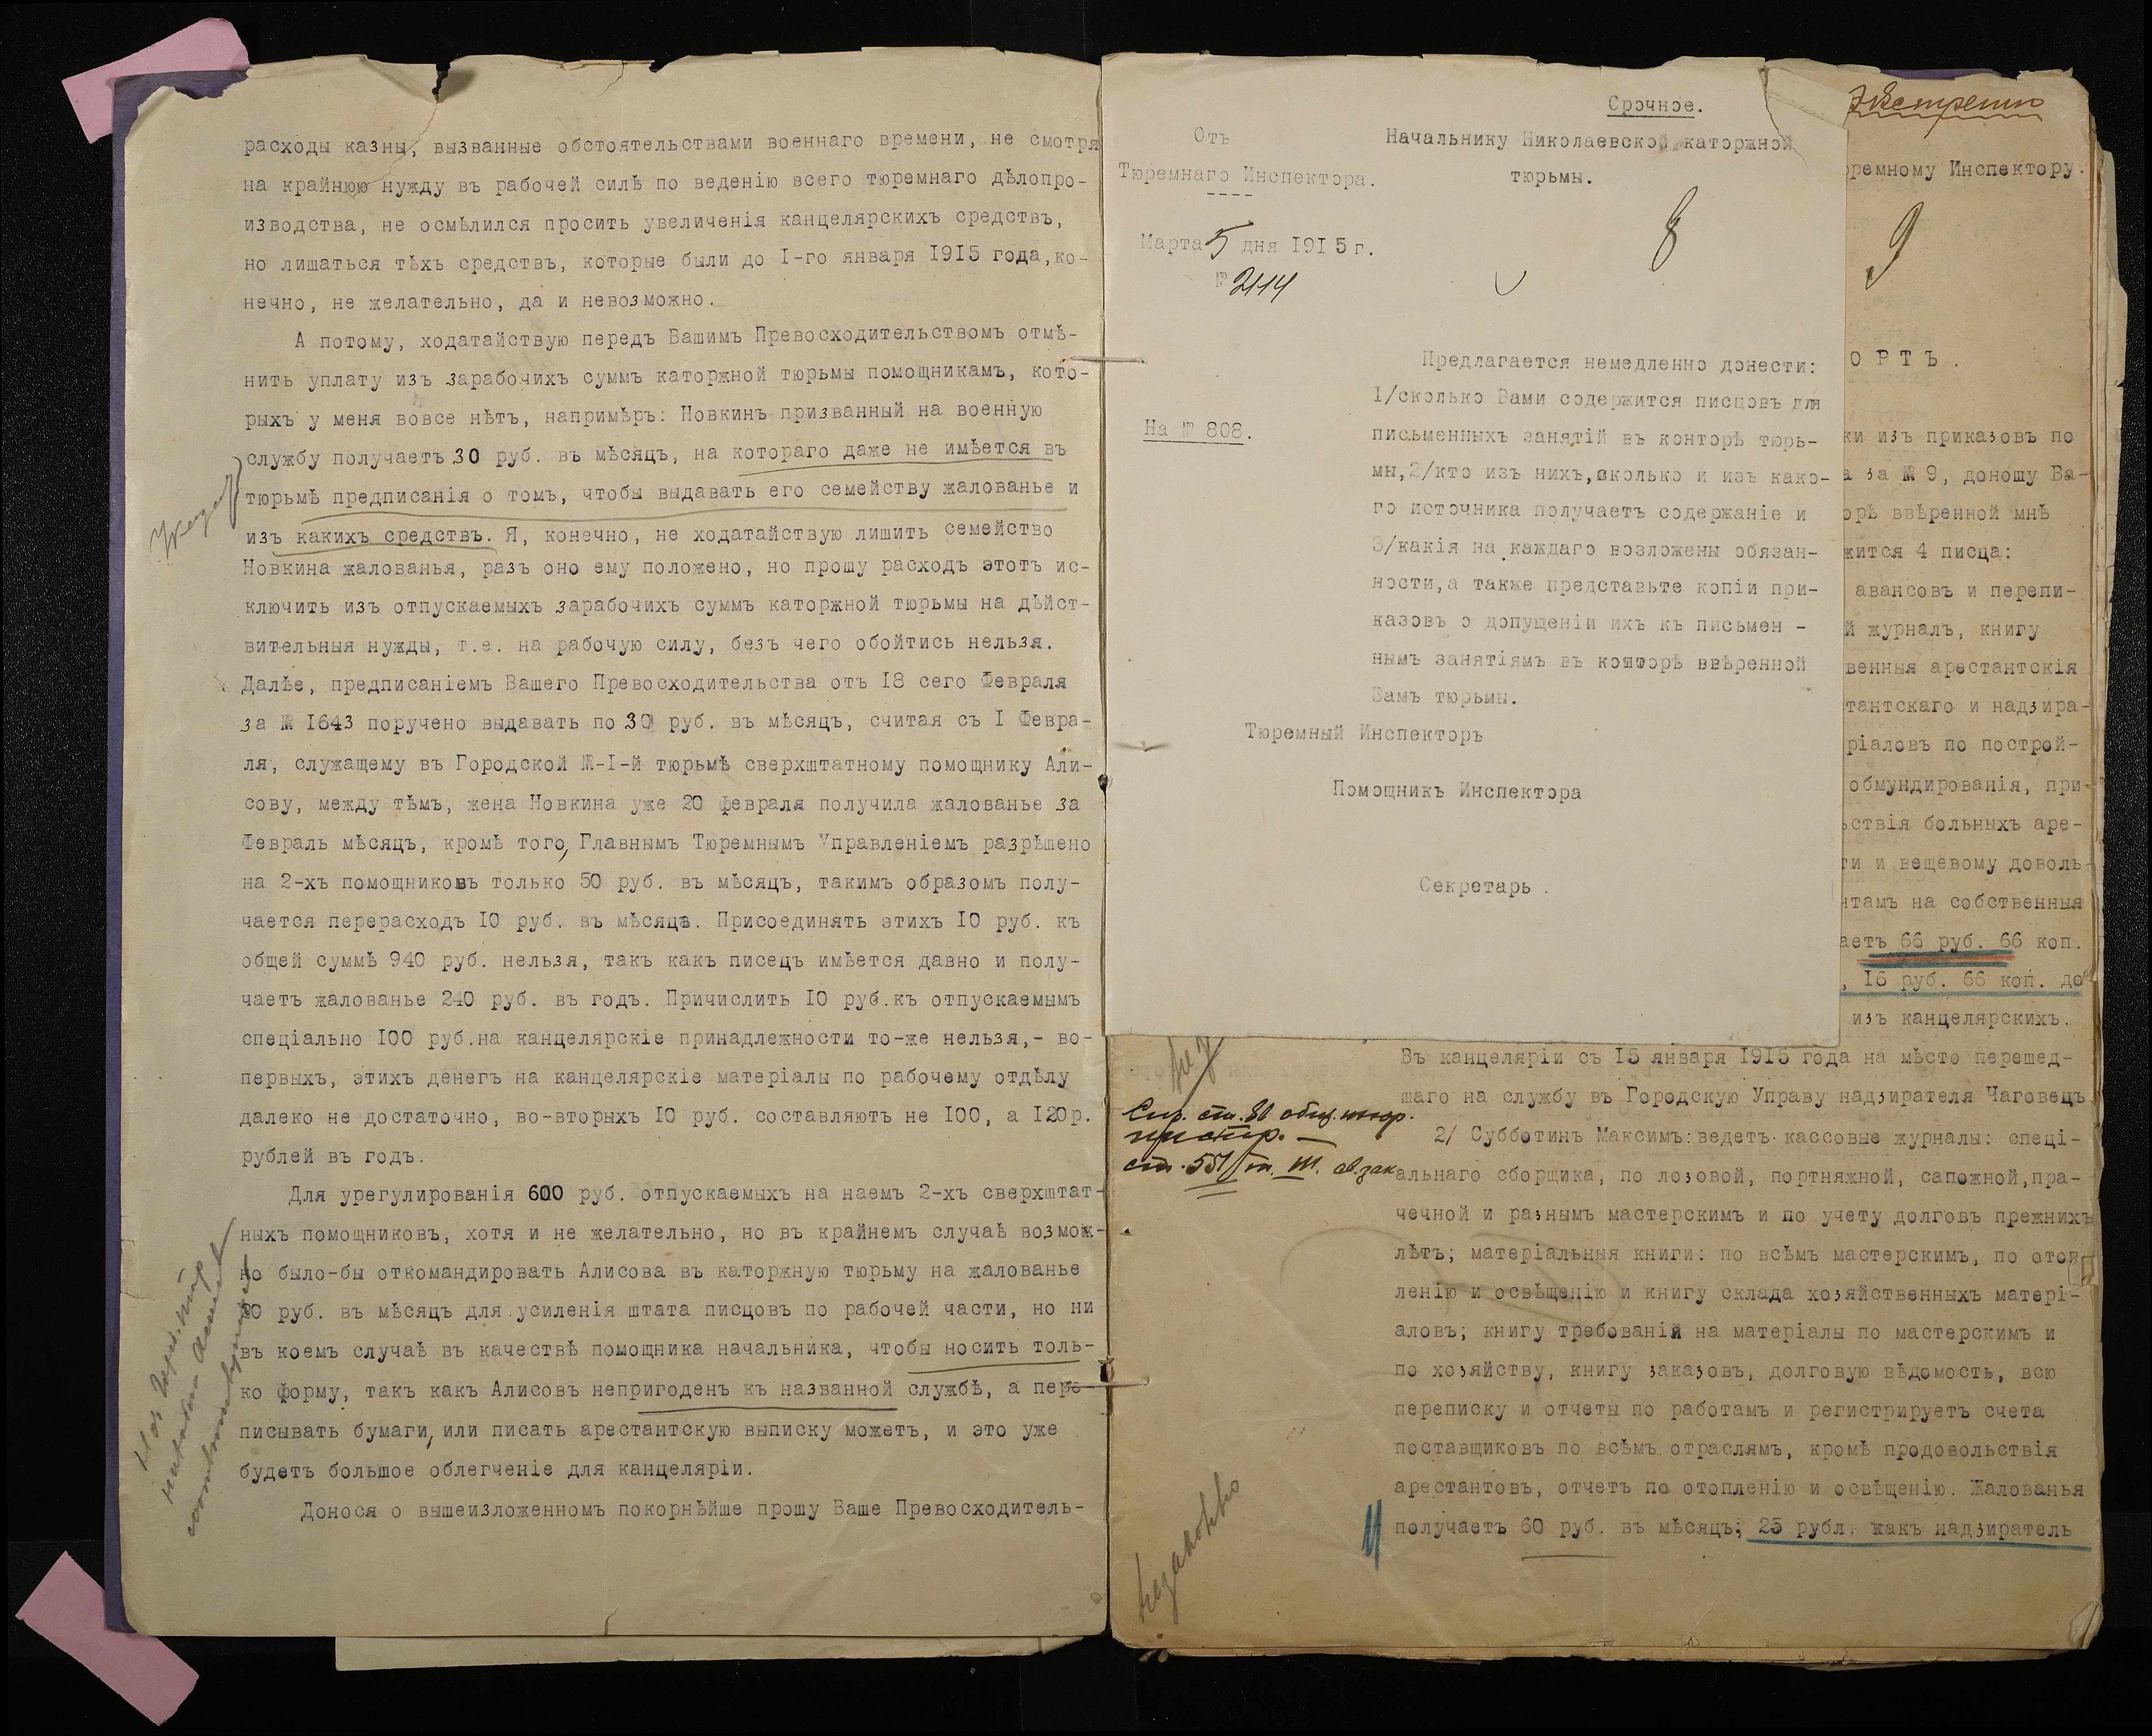 расходы казны, вызванные обстоятельствами военнаго времени, не смотря
на крайнюю нужду въ рабочей силѣ по веденію всего тюремнаго дѣлопро-
изводства, не осмѣлился просить увеличенія канцелярскихъ средствъ,
но лишаться тѣхъ средствъ, которые были до I-го января I9I5 года,ко-
нечно, не желательно, да и невозможно.
А потому, ходатайствую передъ Вашимъ Превосходительствомъ отмѣ-
нить уплату изъ заработчихъ суммъ каторжной тюрьмы помощникамъ, кото-
рыхъ у меня вовсе нѣтъ, напримѣръ: Новкинъ призванный на военную
службу получаетъ 30 руб. въ мѣсяцъ, на котораго даже не имѣется въ
тюрьмѣ предписанія о томъ, чтобы выдавать его семейству жалованье и
изъ какихъ средствъ. Я, конечно, не ходатайствую лишить семейство
Новкина жалованья, разъ оно ему положено, но прошу расходъ этотъ ис-
ключить изъ отпускаемыхъ зарабочихъ суммъ каторжной тюрьмы на дѣйст-
вительныя нужды, т.е. на рабочую силу, безъ чего обойтись нельзя.
Далѣе, предписаніемъ Вашего Превосходительства отъ I8 сего Февраля
за № I643 поручено выдавать по 30 руб. въ мѣсяцъ, считая съ I Февра-
ля, служащему въ Городской №-I-й тюрьмѣ сверхштатному помощнику Али-
сову, между тѣмъ, жена Новкина уже 20 февраля получила жалованье за
Февраль мѣсяцъ, кромѣ того, Главнымъ Тюремнымъ Управленіемъ разрѣшено
на 2-хъ помощниковъ только 50 руб. въ мѣсяцъ, такимъ образомъ полу-
чается перерасходъ I0 руб. въ мѣсяцъ. Присоединять этихъ I0 руб. къ
общей суммѣ 940 руб. нельзя, такъ какъ писецъ имѣется давно и полу-
чаетъ жалованье 240 руб. въ годъ. Причислить I0 руб.къ отпускаемымъ
спеціально I00 руб.на канцелярскіе принадлежности то-же нельзя,- во-
первыхъ, этихъ денегъ на канцелярскіе матеріалы по рабочему отдѣлу
далеко не достаточно, во-вторыхъ I0 руб. составляютъ не I00, а I20р.
рублей въ годъ.
Для урегулированія 600 руб. отпускаемыхъ на наемъ 2-хъ сверхштат-
ныхъ помощниковъ, хотя и не желательно, но въ крайнемъ случаѣ возмож-
но было-бы откомандировать Алисова въ каторжную тюрьму на жалованье
руб. въ мѣсяцъ для усиленія штата писцовъ по рабочей части, но ни
въ коемъ случаѣ въ качествѣ помощника начальника, чтобы носить толь-
ко форму, такъ какъ Алисовъ непригоденъ къ названной службѣ, а пере-
писывать бумаги, или писать арестантскую выписку можетъ, и это уже
будетъ большое облегченіе для канцеляріи.
Донося о вышеизложенномъ покорнѣйше прошу Ваше Превосходитель-
Срочное.
Отъ
Тюремнаго Инспектора.
----
Марта 5 дня I9I5г.
№ 2114
На № 808.
Начальнику Николаевской каторжной
тюрьмы.
8
Предлагается немедленно донести:
I/сколько Вами содержится писцовъ для
письменныхъ занятій въ конторѣ тюрь-
мы,2/кто изъ нихъ,сколько и изъ како-
го источника получаетъ содержаніе и
3/какія на каждаго возложены обязан-
ности,а также представьте копіи при-
казовъ о допущеніи ихъ къ письмен -
нымъ занятіямъ въ конторѣ ввѣренной
Вамъ тюрьмы.
Тюремный Инспекторъ
Помощникъ Инспектора
Секретарь .
Экстренно
юремному Инспектору.
9
ОРТЪ .
ки изъ приказовъ по
а за № 9, доношу Ва-
орѣ ввѣренной мнѣ
жится 4 писца:
авансовъ и перепи-
й журналъ, книгу
венныя арестантскія
тантскаго и надзира-
ріаловъ по построй-
обмундированія, при-
ьствія больныхъ аре-
ти и вещевому доволь-
нтамъ на собственныя
аетъ 66 руб. 66 коп.
, I6 руб. 66 коп. до
изъ канцелярскихъ.
Въ канцеляріи съ I5 января I9I5 года на мѣсто перешед-
шаго на службу въ Городскую Управу надзирателя Чаговецъ.
2/ Субботинъ Максимъ:ведетъ кассовые журналы: спеці-
альнаго сборщика, по лозовой, портняжной, сапожной,пра-
чечной и разнымъ мастерскимъ и по учету долговъ прежнихъ
лѣтъ; матеріальныя книги: по всѣмъ мастерскимъ, по отоп
ленію и освѣщенію и книгу склада хозяйственныхъ матері-
аловъ; книгу требованій на матеріалы по мастерскимъ и
по хозяйству, книгу заказовъ, долговую вѣдомость, всю
переписку и отчеты по работамъ и регистрируетъ счета
поставщиковъ по всѣмъ отраслямъ, кромѣ продовольствія
арестантовъ, отчетъ по отопленію и освѣщенію. Жалованья
получаетъ 60 руб. въ мѣсяцъ; 25 рубл. какъ надзиратель
общ. тюр.
инстр.
ст. 551 т. III. св.зак
незаконно